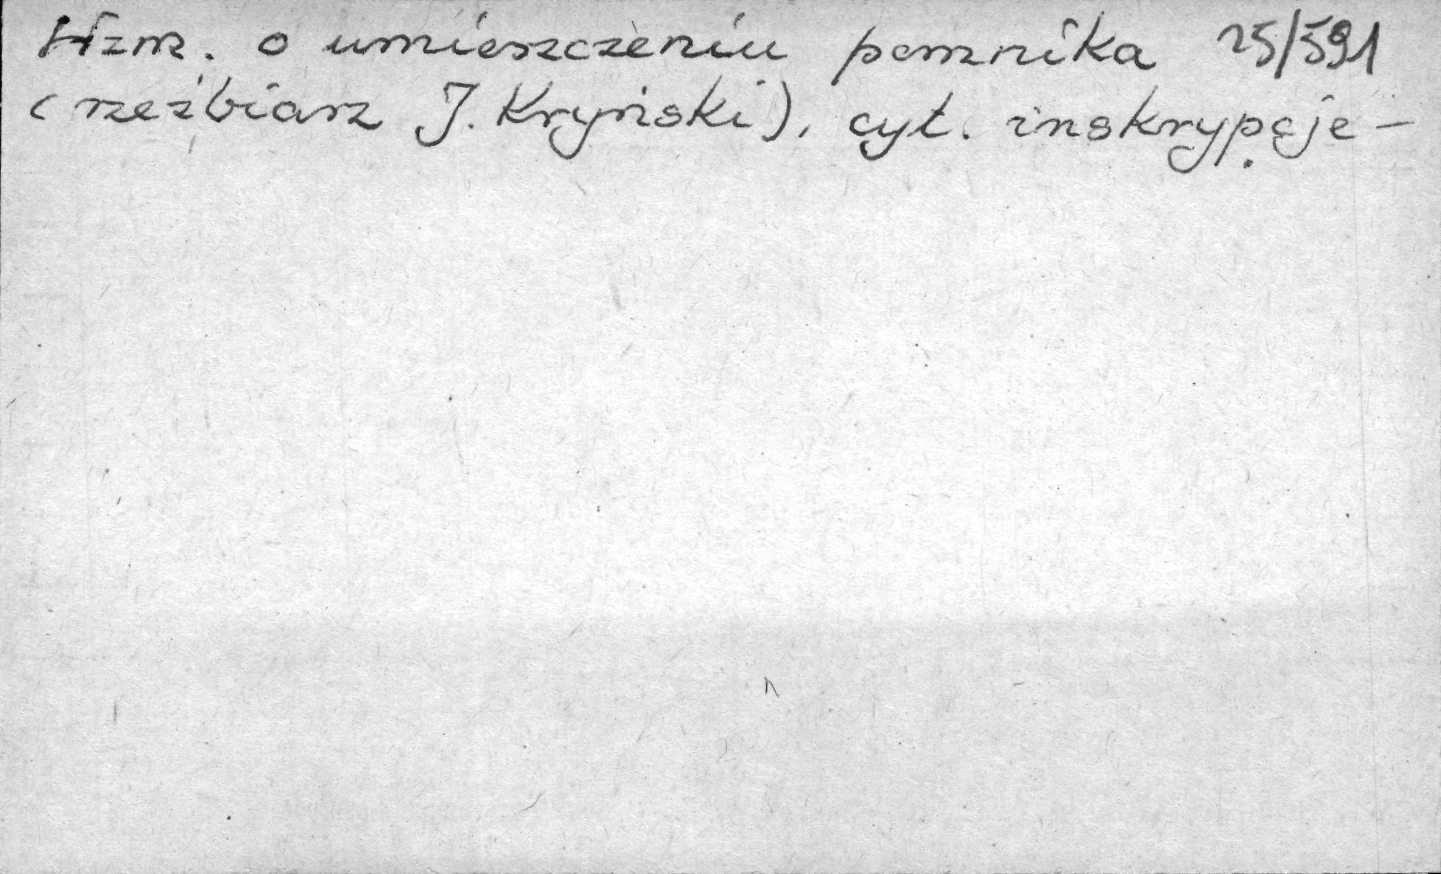 Wzm. o umieszczeniu pomnika 25/591
(rzeźbiarz J. Kryński), cyt. inskrypcje -